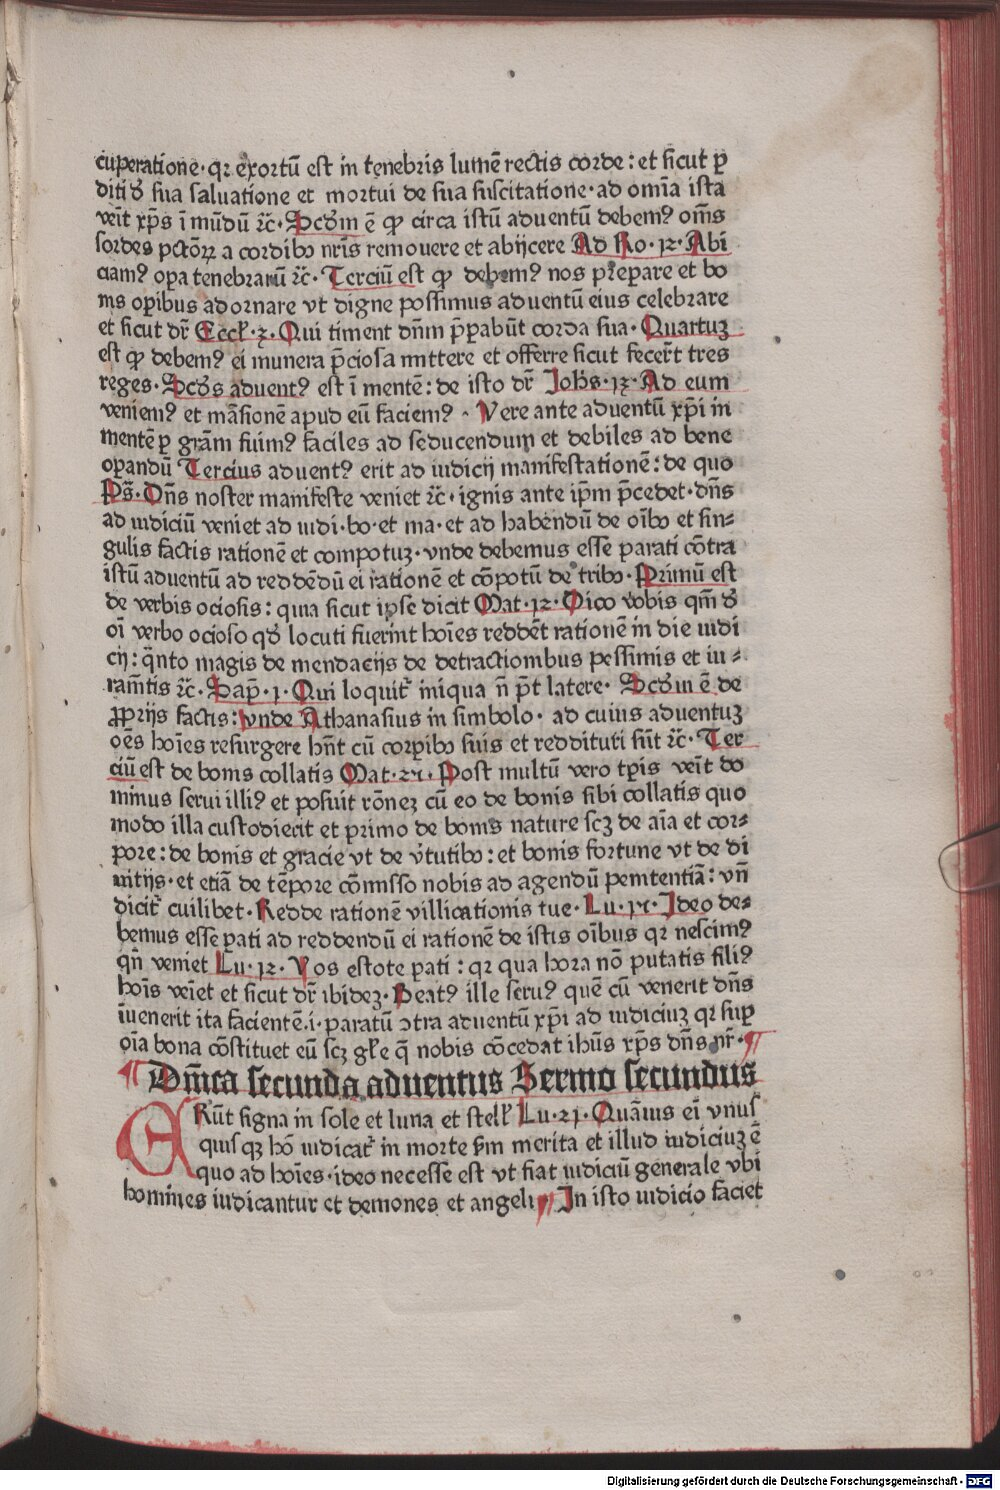 cuperatione·qr exortū est in tenebris lumē rectis corde: et sicut ꝑ
diti ꝺs sua saluatione et mortui de sua suscitatione·ad om̄ia ista
veit̄ xp̄s ī mūdū ⁊c̄·Scd̄m ē ꝙ circa istū aduentū debemꝰ om̄s
sordes pctōꝝ a cordibꝫ nr̄is remouere et abijcere Ad Ro·12·Abi
ciamꝰ oꝑa tenebrarū ⁊c̄·Terciū est ꝙ debemꝰ nos p̄repare et bo
nis oꝑibus adornare vt digne possimus aduentū eius celebrare
et sicut dr̄ Eccl̄·2·Qui timent dn̄m p̄parabūt corda sua·Quartuʒ
est ꝙ debemꝰ ei munera p̄ciosa mittere et offerre sicut fecer̄t tres
reges·Scd̄s aduentꝰ est ī mentē: de isto dr̄ Joh̄s·14·Ad eum
veniemꝰ et māsionē apud eū faciemꝰ·Vere ante aduentū xp̄i in
mentē ꝑ gr̄am fuimꝰ faciles ad seducendum et debiles ad bene
oꝑandū Tercius aduentꝰ erit ad iudicij manifestationē: de quo
Ps̄·Dn̄s noster manifeste veniet ⁊c̄·ignis ante ip̄m p̄cedet·dn̄s
ad iudiciū veniet ad iudi·bo·et ma·et ad habendū de oībꝫ et sin⸗
gulis factis rationē et compotuʒ·vnde debemus esse parati cōtra
istū aduentū ad reddēdū ei rationē et cōpotū de tribꝫ·Primū est
de verbis ociosis: quia sicut ipse dicit Mat·12·Dico vobis qm̄ ꝺ
oī verbo ocioso qd̄ locuti fuerint hoīes reddēt rationē in die iudi
cij: q̄nto magis de mendacijs de detractionibus pessimis et iu⸗
ram̄tis ⁊c̄·Sap̄·1·Qui loquit̄ iniqua n̄ p̄t latere·Scd̄m ē de
ꝓprijs factis: vnde Athanasius in simbolo·ad cuius aduentuʒ
oēs hoīes resurgere hn̄t cū corꝑibꝫ suis et reddituti sūt ⁊c̄·Ter
ciū est de bonis collatis Mat·25·Post multū vero tꝑis veīt do
minus serui illiꝰ et posuit rōneʒ cū eo de bonis sibi collatis quo
modo illa custodierit et primo de bonis nature scʒ de aīa et cor⸗
pore: de bonis et gracie vt de v̄tutibꝫ: et bonis fortune vt de di
uitijs·et etiā de tēpore cōmisso nobis ad agendū penitentiā: vn̄
dicit̄ cuilibet·Redde rationē villicationis tue·Lu·16·Ideo de⸗
bemus esse ꝑati ad reddendū ei rationē de istis oībus qr nescimꝰ
qn̄ veniet Lu·12·Vos estote ꝑati: qr qua hora nō putatis filiꝰ
hoīs veīet et sicut dr̄ ibideʒ·Beatꝰ ille seruꝰ quē cū venerit dn̄s
īuenerit ita facientē.i·paratū ↄtra aduentū xp̄i ad iudiciuʒ qr suꝑ
oīa bona cōstituet eū scʒ gl̄e q̄ nobis cōcedat ih̄us xp̄s dn̄s nr̄·¶
¶ Dn̄ica secunda aduentus Sermo secundus
ERūt signa in sole et luna et stell̄ Lu·21·Quāuis ei̅ vnus
quisqʒ hō iudicat̄ in morte ẜm merita et illud iudiciuʒ ē
quo ad hoīes·ideo necesse est vt fiat iudiciū generale vbi
homines iudicantur et demones et angeli¶ In isto iudicio faciet
Digitalisierung gefördert durch die Deutsche Forschungsgemeinschaft - DFG